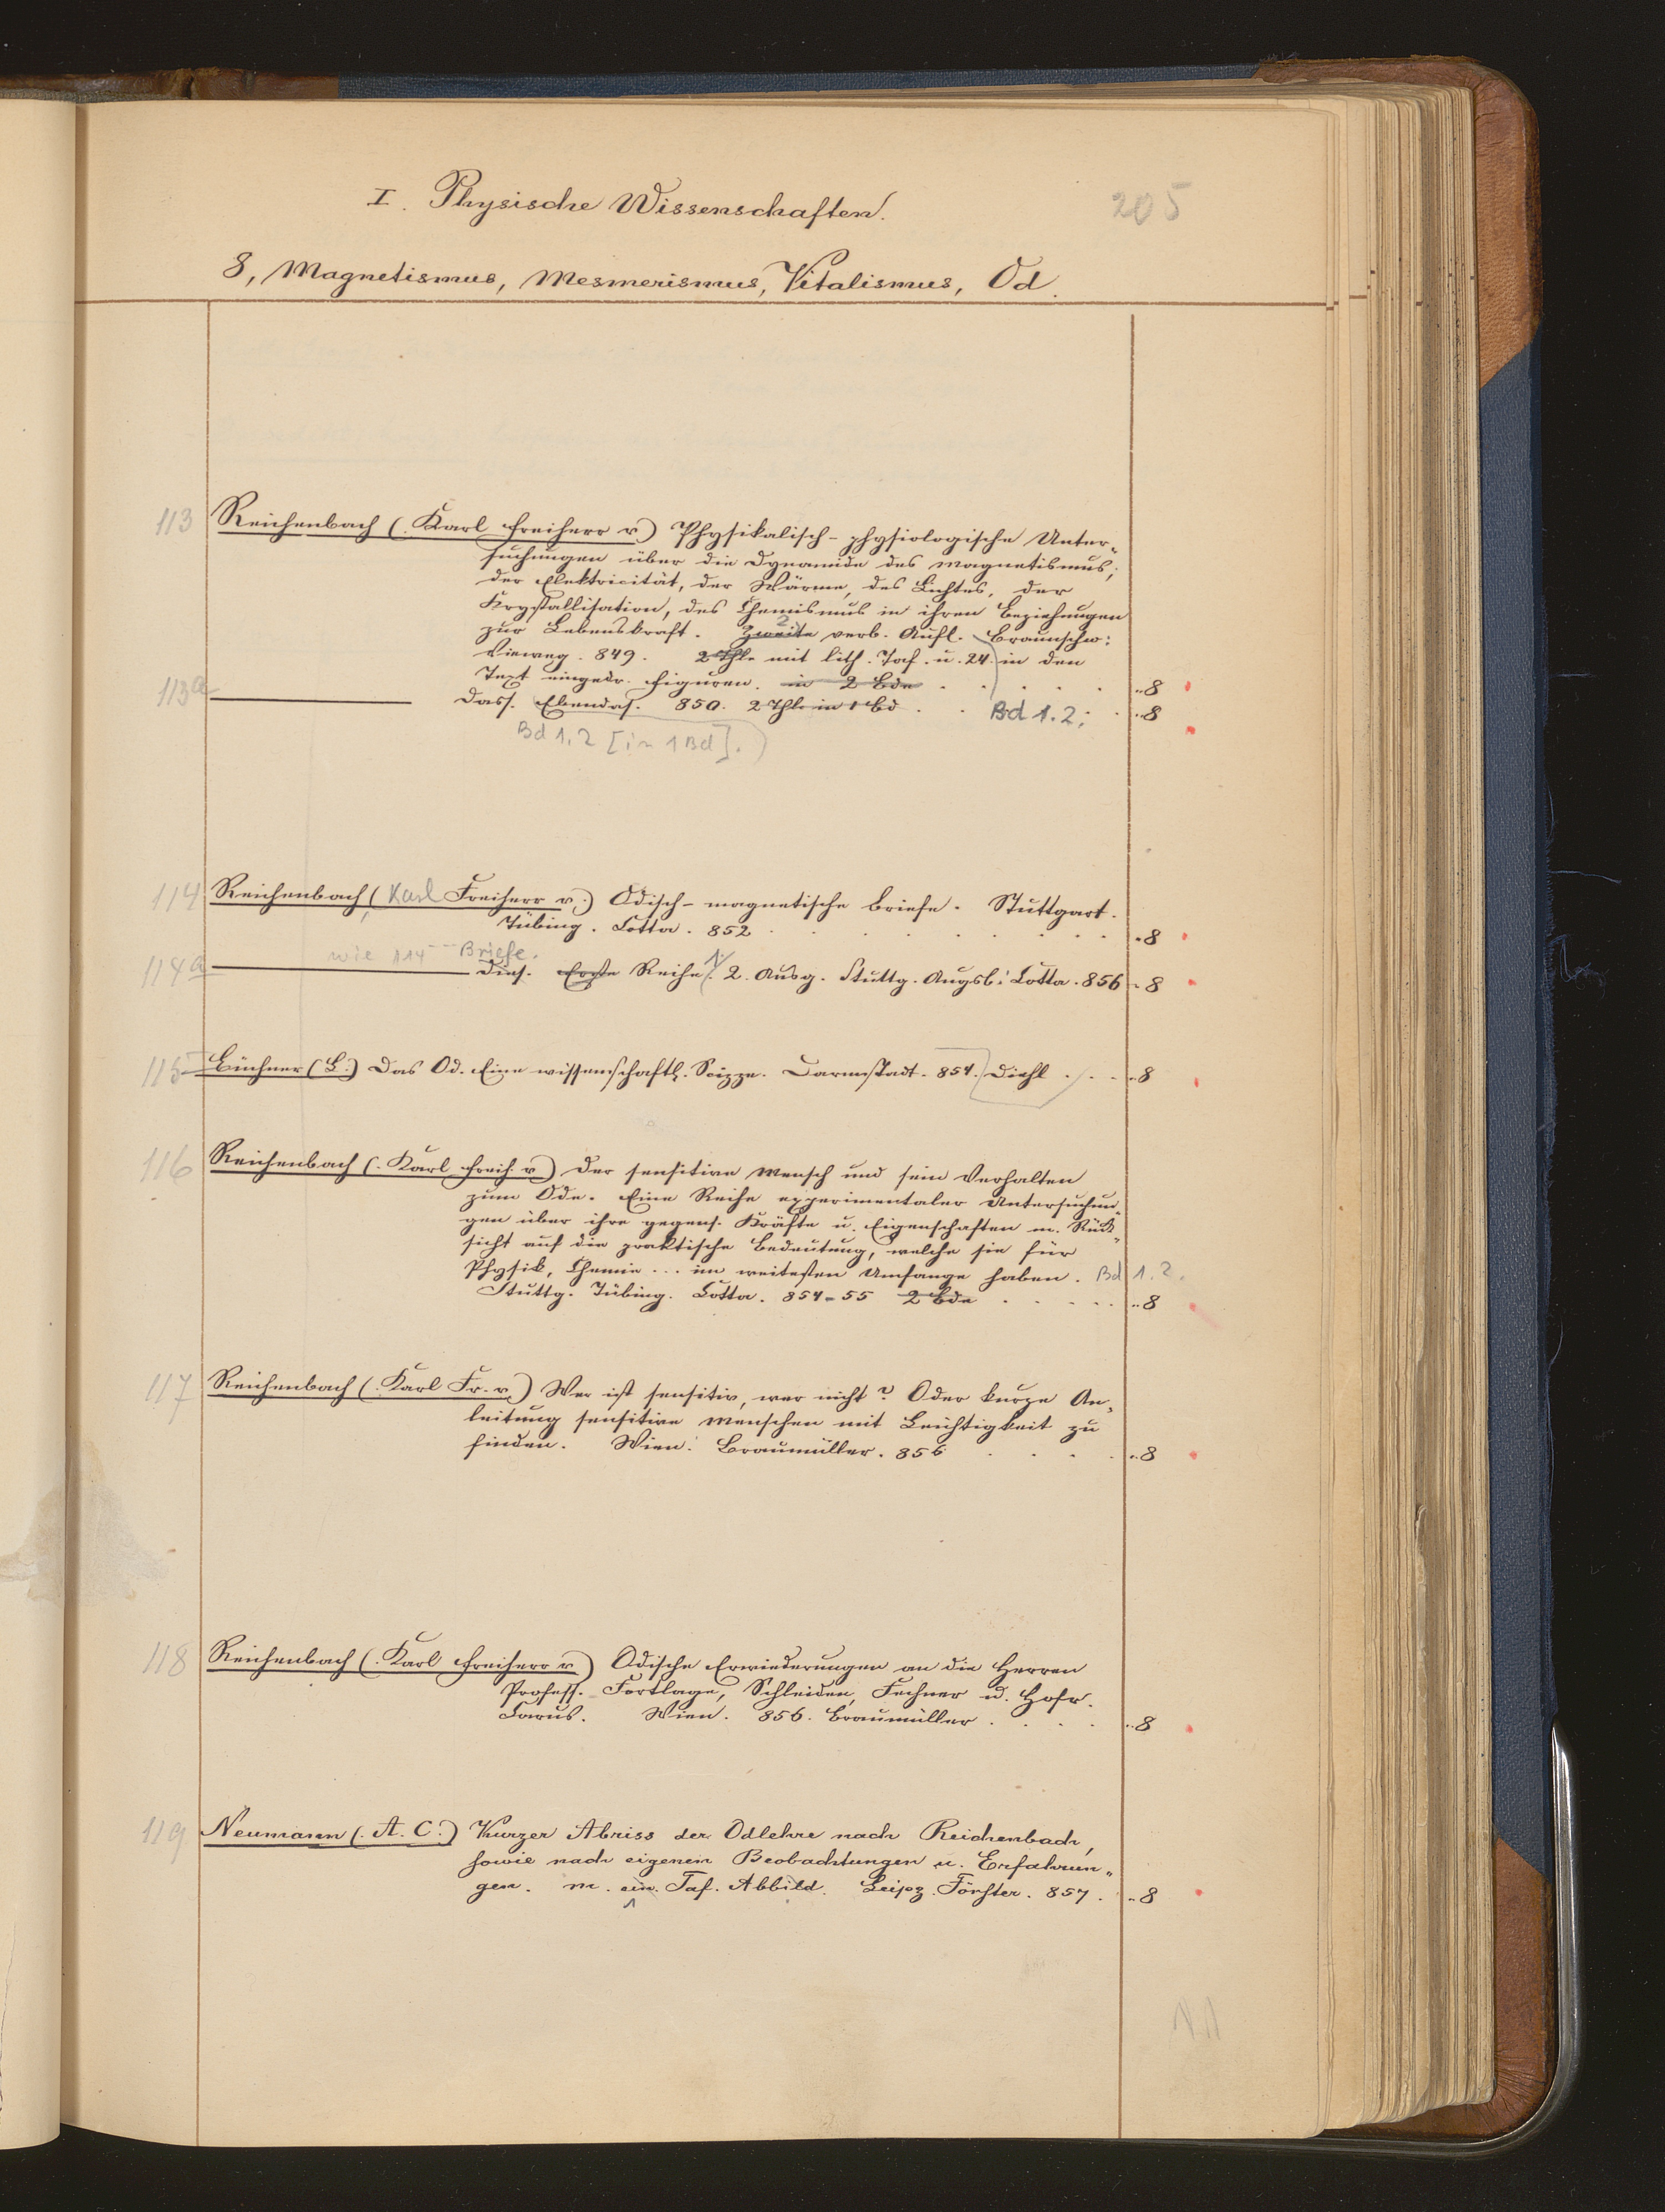 I. Physische Wissenschaften.
205
8, Magnetismus, Mesmerismus, Vitalismus, Od.
113 Reichenbach (: Karl Freiherr v.) Physikalisch-physiologische Unter-
suchungen über die Dynamide des Magnetismus,
der Elektricität, der Wärme, des Lichtes, der
Krystallisation, des Chemismus in ihren Beziehungen
zur Lebenskraft. Zweite 2 verb. Aufl. Braunschw:
Vieweg. 849. 2 Thle mit lith. Taf. u. 24. in den
Text eingedr. Figuren. in 2 Bde . . . . . „8
113a Dass. Ebendas. 850. 2 Thle in 1 Bd . . Bd 1.2; . „8
Bd 1,2 [in 1 Bd].)
114 Reichenbach (Karl Freiherr v.:) Odisch-magnetische Briefe. Stuttgart.
Tübing. Cotta. 852 . . . . . . „8
wie 114 -- Briefe.
114a Dies. Erste Reihe. 1. 2. Ausg. Stuttg. Augsb: Cotta. 856 „8
115 Büchner (L:) Das Od. Eine wissenschaftl. Scizze. Darmstadt. 854. Diehl . . . „8
116 Reichenbach (: Karl Freih. v.) Der sensitive Mensch und sein Verhalten
zum Ode. Eine Reihe experimentaler Untersuchun-
gen über ihre gegens. Kräfte u. Eigenschaften m. Rück-
sicht auf die praktische Bedeutung, welche sie für
Physik, Chemie ... im weitesten Umfange haben. Bd 1.2.
Stuttg. Tübing. Cotta. 854-55 2 Bde . . . . . „8
117 Reichenbach (: Karl Fr. v.) Wer ist sensitiv, wer nicht? Oder kurze An-
leitung sensitive Menschen mit Leichtigkeit zu
finden. Wien: Braumüller. 856 . . . . „8
118 Reichenbach (: Karl Freiherr v.) Odische Erwiederungen an die Herren
Profess. Fortlage, Schleiden, Fechner u. Hofr.
Carus. Wien. 856. Braumüller . . . . „8
119 Neumann (. A. C:) Kurzer Abriss der Odlehre nach Reichenbach,
sowie nach eigenen Beobachtungen u. Erfahrun-
gen. m. ein. 1 Taf. Abbild. Leipz. Förster. 857. „8